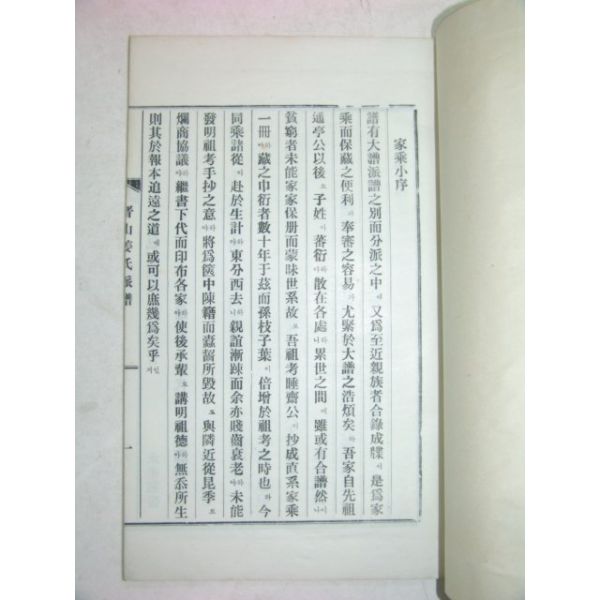 家乘小序
譜有大譜派譜之別而分派之中에又爲至近親族者合錄成牒이是爲家
乘而保藏之便利와奉審之容易가尤緊於大譜之浩煩矣라吾家自先祖
通亭公以後로子姓이蕃衍야散在各處니累世之間에雖或有合譜然이나
貧窮者未能家家保册而蒙昧世系故로吾祖考睡齋公이抄成直系家乘
一冊야藏之巾衍者數十年于玆而孫枝子葉이倍增於祖考之時也와今
同乘諸從이赴於生計야東分西去니親誼漸踈而余亦賤齒衰老야未能
發明祖考手抄之意야將爲篋中陳籍而蠹齧所毁故로與隣近從昆季로
爛商協議야繼書下代而印布各家야使後承輩로講明祖德야無忝所生
則其於報本追遠之道에或可以庶幾爲矣乎인저
晉山姜氏派譜
一